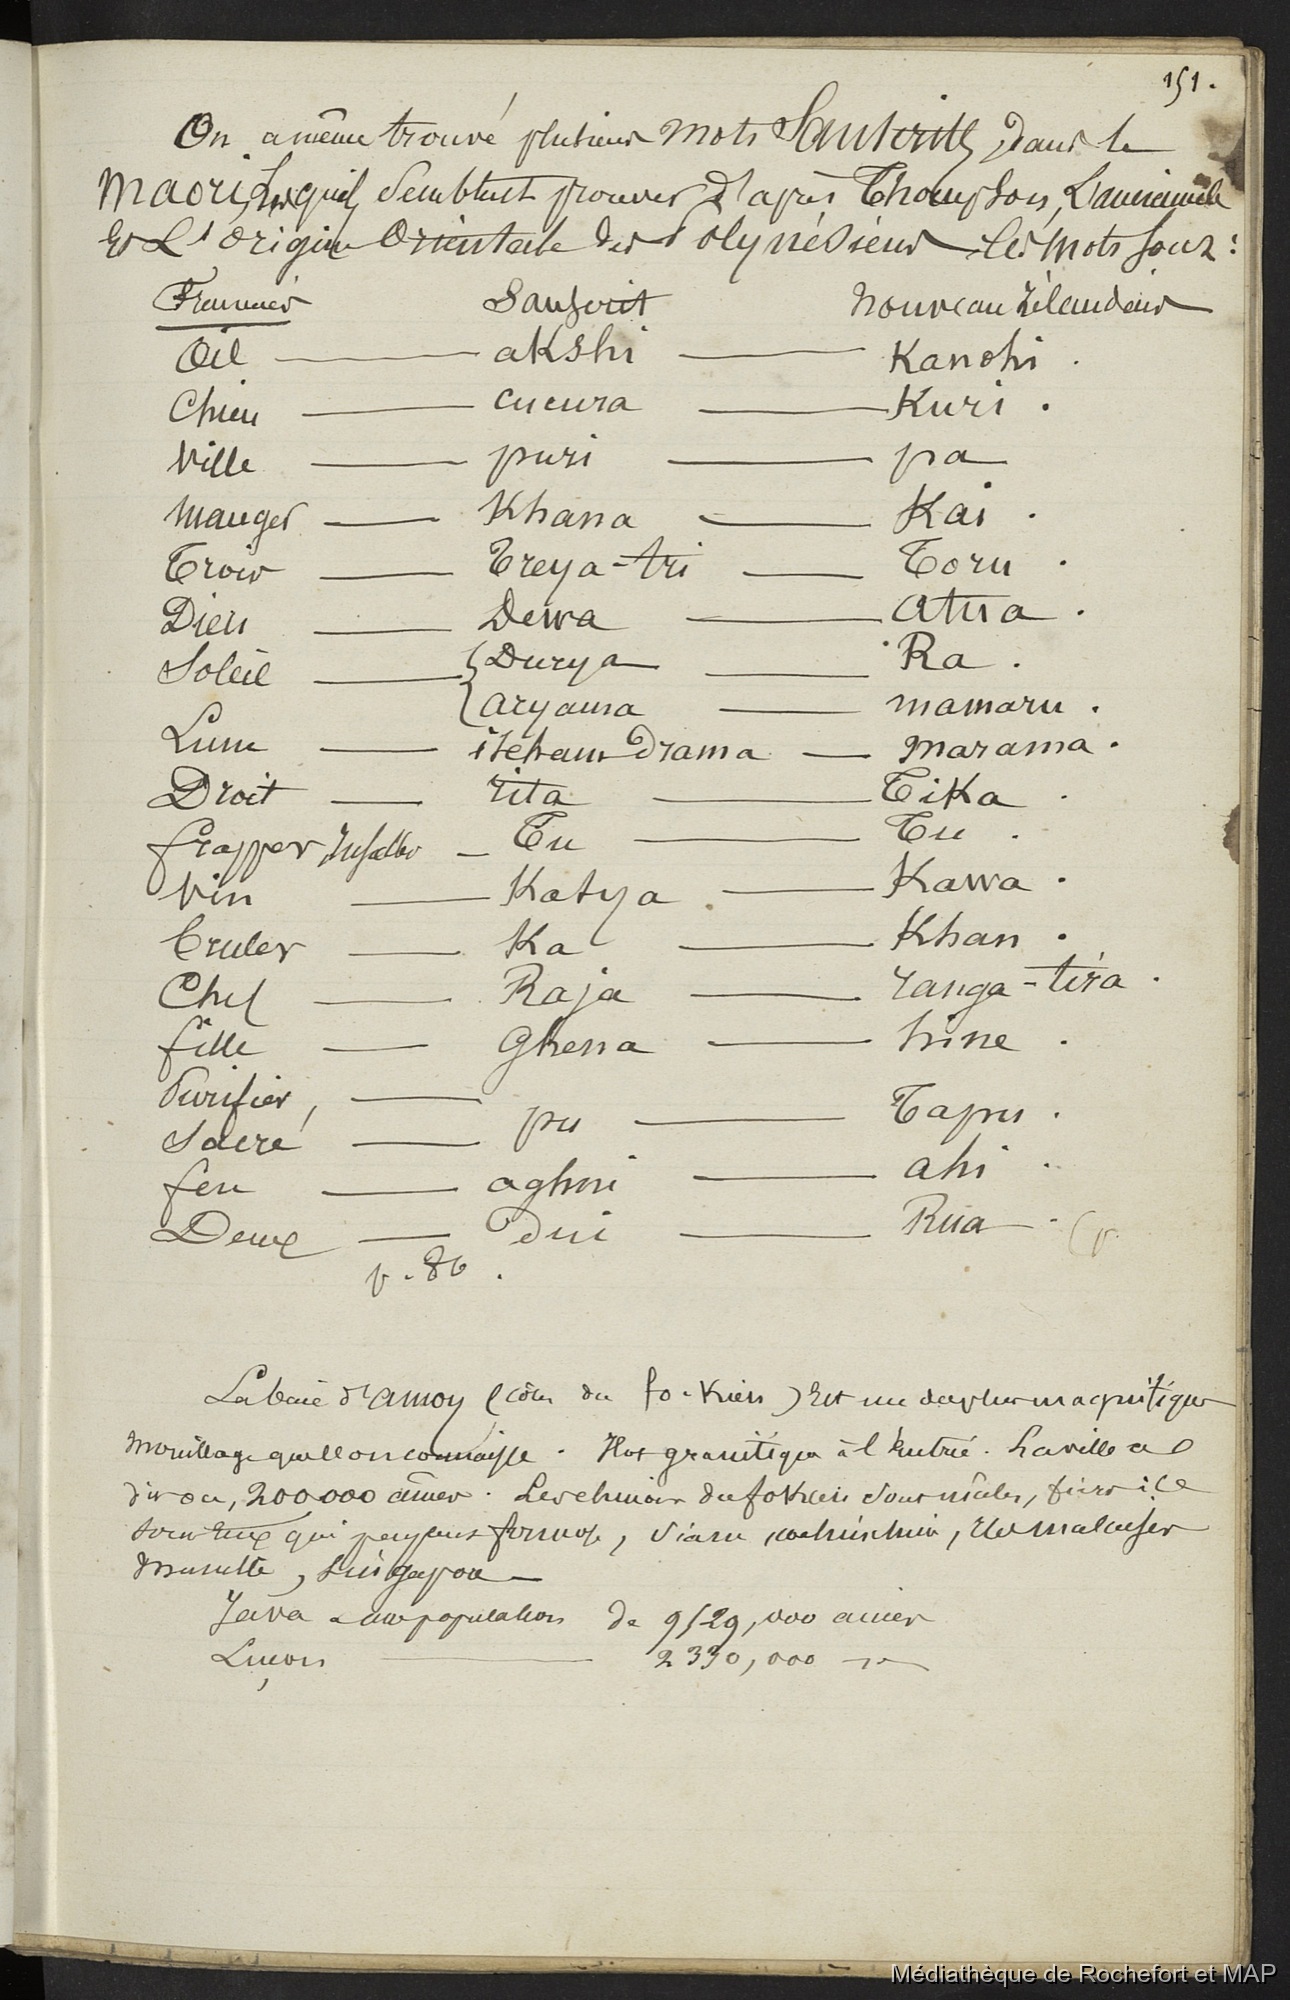 151.
On a même trouvé plusieurs mots Sanscrits, dans le
Maori, lesquels semblent prouver d'après Thompson, L'ancienneté
et L'origine Orientale des Polynésiens - les mots sont :
Français Sanscrit Nouveau Zélandais
Oeil — akshi — Kanohi .
Chien — cucura — Kuri .
Ville — puri — pa
Manger — Khana — Kai .
Trois — Treya-tri — Toru .
Dieu — Dewa — atua .
Soleil — { Durya — Ra .
{ aryama — mamaru .
Lune — Drama — marama .
Droit — rita — Tika .
frapper, — Tu — Tu .
Vin — Katya — Kawa .
Bruler — Ka — Khan .
Chef — Raja — ranga-tira .
fille — Ghena — hine .
Purifier, —
pu — Tapu .
Sacré —
feu — aghni — ahi .
Deux — Dui — Rua .
p. 86 .
La baie d'amoy (côte du fo-Kien) est une des plus magnifiques
mouillages que l'on connaisse . Ilot granitique à l'entrée . La ville a
200000 âmes . Les chinois du foKien sont mâles, fiers
sont eux qui peuplent formose, Siam, cochinchine, et
, Singapou —
Java a une population de 9529,000 ames
Luçon — 2330,000 —
Médiathèque de Rochefort et MAP